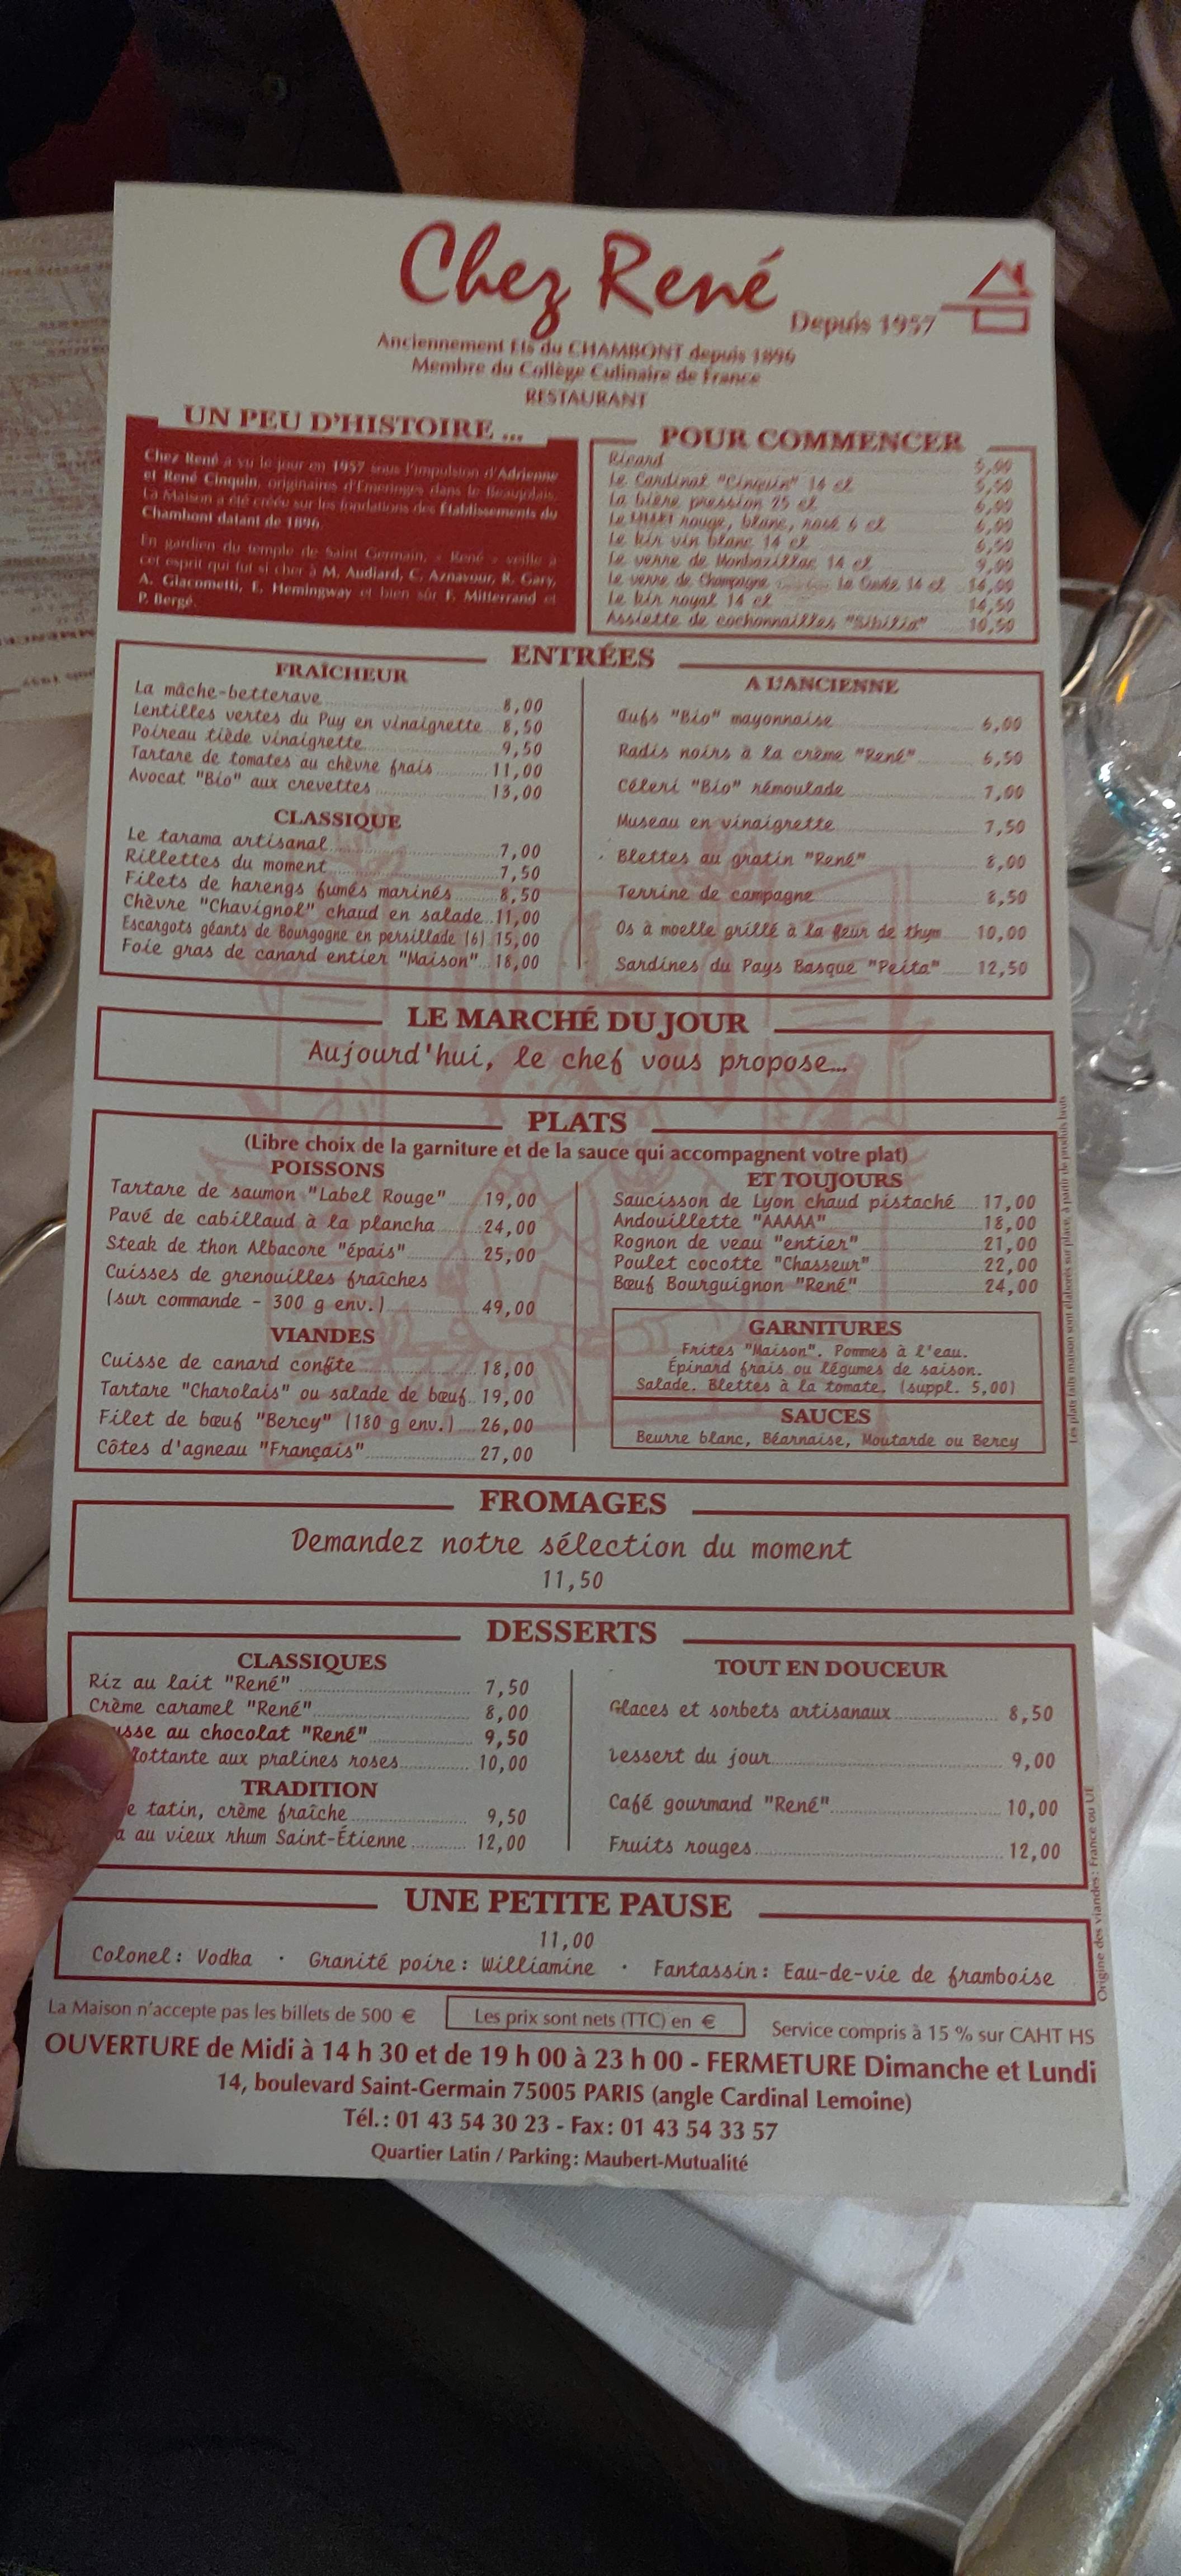 Chez René
Depuis 1957
Anciennement Ets du CHAMBONT depuis 1896
Membre du Collège Culinaire de France
RESTAURANT
UN PEU D'HISTOIRE ...
Chez René a vu le jour en 1957 sous l'impulsion d'Adrienne
et René Cinquin, originaires d'Emeringes dans le Beaujolais.
La Maison a été créée sur les fondations des Établissements du
Chambont datant de 1896.
En gardien du temple de Saint Germain, « René » veille à
cet esprit qui fut si cher à M. Audiard, C. Aznavour, R. Gary,
A. Giacometti, E. Hemingway et bien sûr F. Mitterrand et
P. Bergé.
POUR COMMENCER
Ricard 5,90
Le Cardinal "Cinquin" 14 cl 5,50
La bière pression 25 cl 6,00
Le rouge, blanc, rosé 6 cl 6,00
Le kir vin blanc 14 cl 6,50
Le verre de Monbazillac 14 cl 9,00
Le verre de Champagne 14 cl 14,00
Le kir royal 14 cl 14,50
Assiette de cochonnailles "Sibilia" 10,50
ENTRÉES
FRAÎCHEUR
La mâche-betterave 8,00
Lentilles vertes du Puy en vinaigrette 8,50
Poireau tiède vinaigrette 9,50
Tartare de tomates au chèvre frais 11,00
Avocat "Bio" aux crevettes 13,00
CLASSIQUE
Le tarama artisanal 7,00
Rillettes du moment 7,50
Filets de harengs fumés marinés 8,50
Chèvre "Chavignol" chaud en salade 11,00
Escargots géants de Bourgogne en persillade (6) 15,00
Foie gras de canard entier "Maison" 18,00
A L'ANCIENNE
Œufs "Bio" mayonnaise 6,00
Radis noirs à la crème "René" 6,50
Céleri "Bio" rémoulade 7,00
Museau en vinaigrette 7,50
Blettes au gratin "René" 8,00
Terrine de campagne 8,50
Os à moelle grillé à la fleur de thym 10,00
Sardines du Pays Basque "Peita" 12,50
LE MARCHÉ DU JOUR
Aujourd'hui, le chef vous propose...
PLATS
(Libre choix de la garniture et de la sauce qui accompagnent votre plat)
POISSONS
Tartare de saumon "Label Rouge" 19,00
Pavé de cabillaud à la plancha 24,00
Steak de thon Albacore "épais" 25,00
Cuisses de grenouilles fraîches
(sur commande - 300 g env.) 49,00
VIANDES
Cuisse de canard confite 18,00
Tartare "Charolais" ou salade de bœuf 19,00
Filet de bœuf "Bercy" (180 g env.) 26,00
Côtes d'agneau "Français" 27,00
ET TOUJOURS
Saucisson de Lyon chaud pistaché 17,00
Andouillette "AAAAA" 18,00
Rognon de veau "entier" 21,00
Poulet cocotte "Chasseur" 22,00
Bœuf Bourguignon "René" 24,00
GARNITURES
Frites "Maison". Pommes à l'eau.
Épinard frais ou légumes de saison.
Salade. Blettes à la tomate. (suppl. 5,00)
SAUCES
Beurre blanc, Béarnaise, Moutarde ou Bercy
Les plats faits maison sont élaborés sur place, à partir de produits bruts
FROMAGES
Demandez notre sélection du moment
11,50
DESSERTS
CLASSIQUES
Riz au lait "René" 7,50
Crème caramel "René" 8,00
usse au chocolat "René" 9,50
flottante aux pralines roses 10,00
TRADITION
e tatin, crème fraîche 9,50
a au vieux rhum Saint-Étienne 12,00
TOUT EN DOUCEUR
Glaces et sorbets artisanaux 8,50
Dessert du jour 9,00
Café gourmand "René" 10,00
Fruits rouges 12,00
Origine des viandes : France ou UE
UNE PETITE PAUSE
11,00
Colonel : Vodka · Granité poire : Williamine · Fantassin : Eau-de-vie de framboise
La Maison n'accepte pas les billets de 500 € Les prix sont nets (TTC) en € Service compris à 15 % sur CAHT HS
OUVERTURE de Midi à 14 h 30 et de 19 h 00 à 23 h 00 - FERMETURE Dimanche et Lundi
14, boulevard Saint-Germain 75005 PARIS (angle Cardinal Lemoine)
Tél. : 01 43 54 30 23 - Fax : 01 43 54 33 57
Quartier Latin / Parking : Maubert-Mutualité